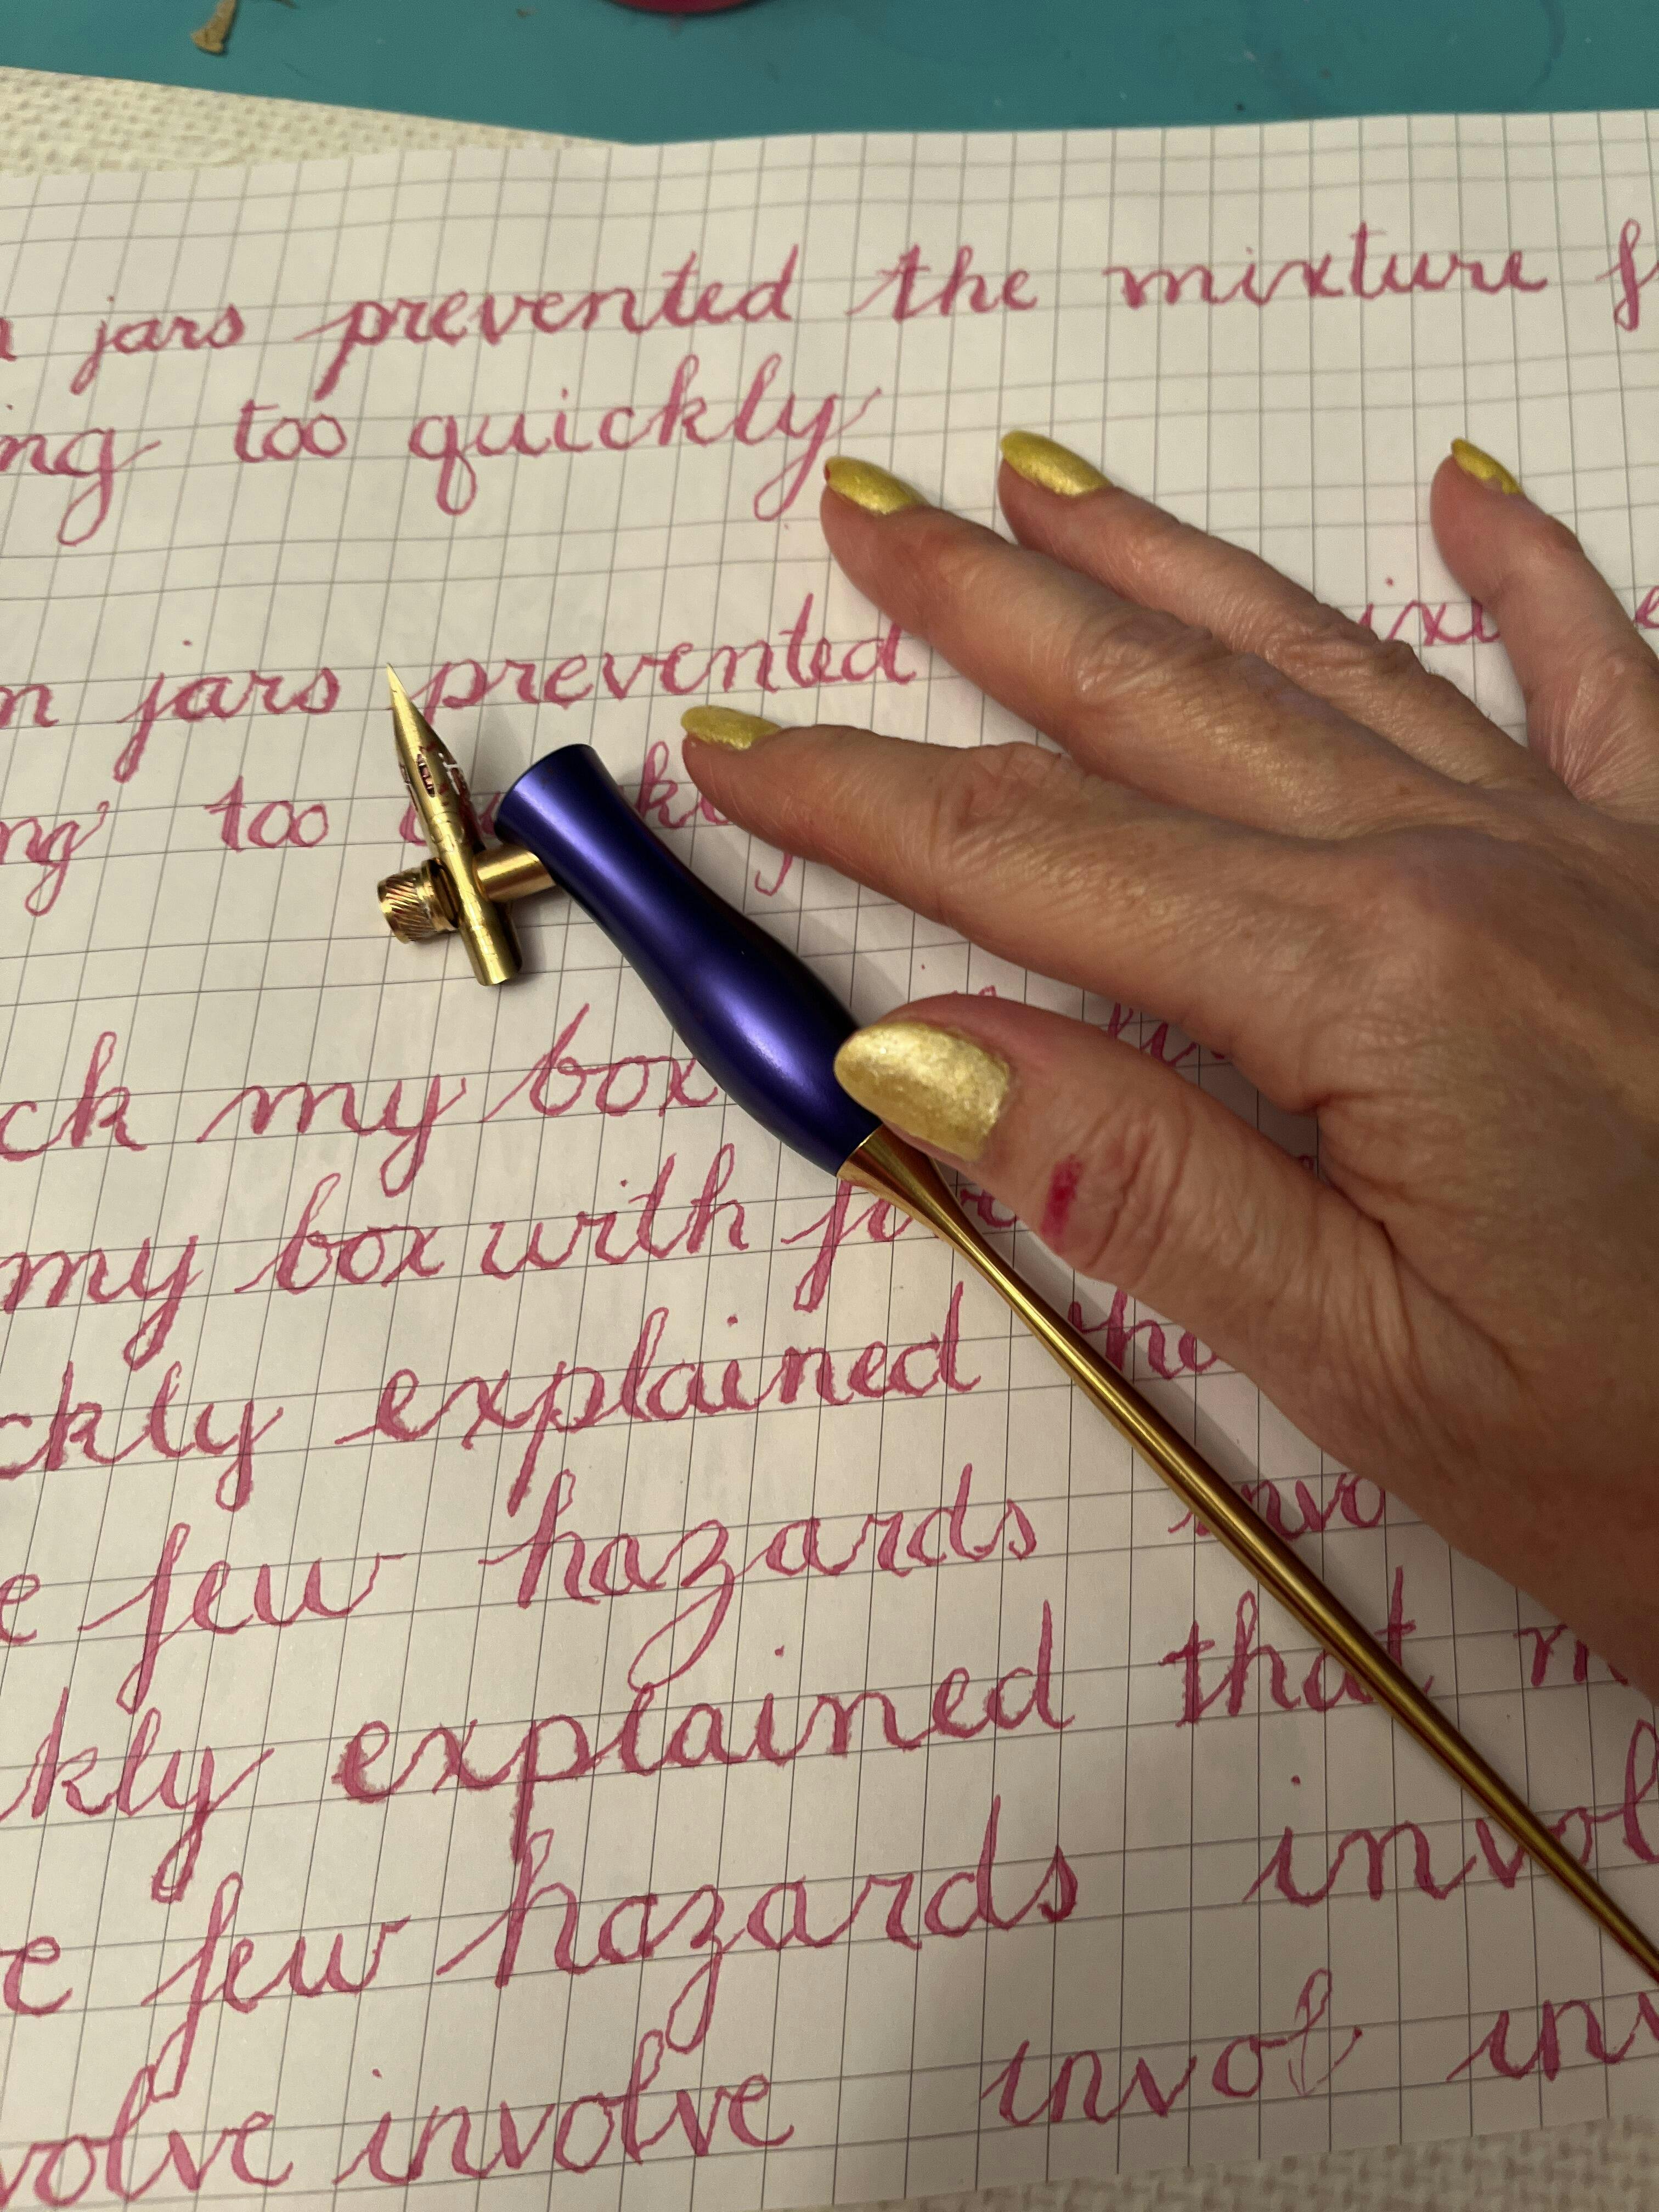 jars prevented the mixture f
ng too quickly
n jars prevented ixt
ng too
ck my box
my box with
ckly explained
e few hazards invo
kly explained that m
e few hazards invol
volve involve invol inv